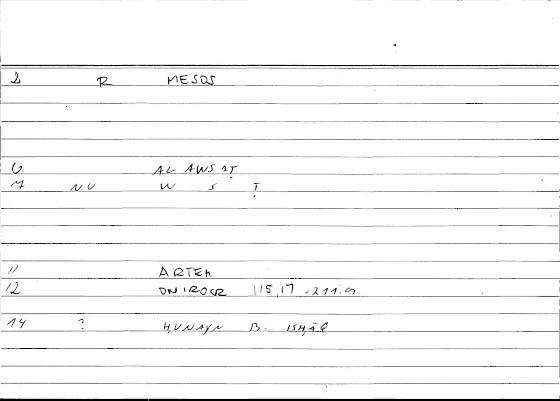 2 R MESOS
6 AL-AWSAṬ
7 NU W S Ṭ
11 ARTEM
12 ONIROCR 115,17 - 211.9
14 ? HUNAYN B. ISHĀQ